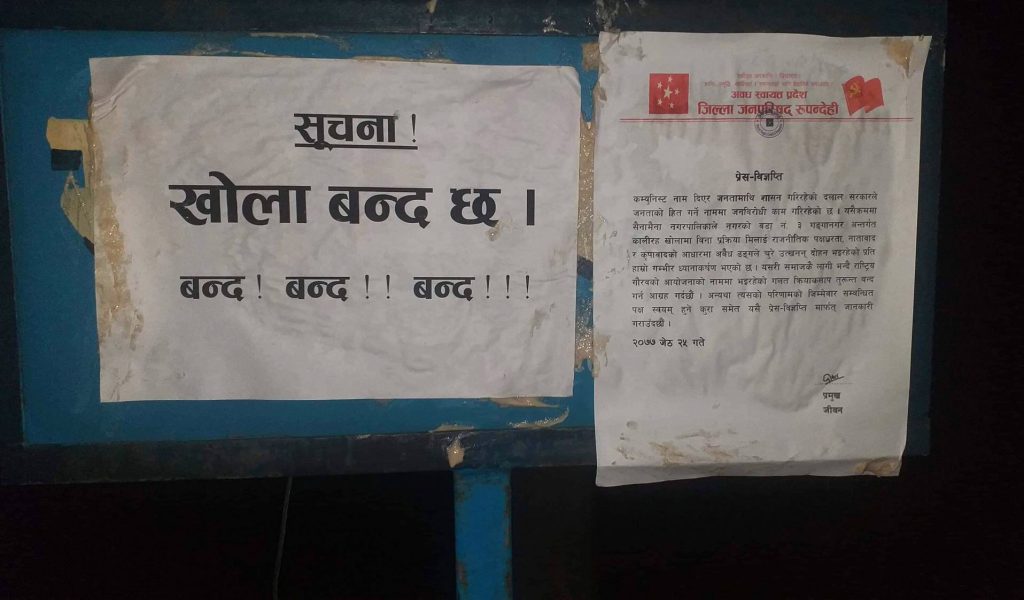 सूचना !
खोला बन्द छ ।
बन्द ! बन्द ! ! बन्द ! ! !
अवध स्वायत्त प्रदेश
जिल्ला जनपरिषद् रुपन्देही
प्रेस-विज्ञप्ति
कम्युनिस्ट नाम दिएर जनतामाथि शासन गरिरहेको दलाल सरकारले
जनताको हित गर्ने नाममा जनविरोधी काम गरिरहेको छ । यसैक्रममा
सैनामैना नगरपालिकाले नगरको वडा नं. ३ गङ्गानगर अन्तर्गत
कालीरह खोलामा विना प्रक्रिया मिलाई राजनीतिक पक्षधरता, नातावाद
र कृपावादको आधारमा अवैध ढङ्गले चुरे उत्खनन् दोहन भइरहेको प्रति
हाम्रो गम्भीर ध्यानाकर्षण भएको छ । यसरी समाजकै लागी भन्दै राष्ट्रिय
गौरवको आयोजनाको नाममा भइरहेको गलत क्रियाकलाप तुरुन्त बन्द
गर्न आग्रह गर्दछौं । अन्यथा त्यसको परिणामको जिम्मेवार सम्बन्धित
पक्ष स्वयम् हुने कुरा समेत यसै प्रेस-विज्ञप्ति मार्फत् जानकारी
गराउँदछौं ।
२०७७ जेठ २५ गते
प्रमुख
जीवन